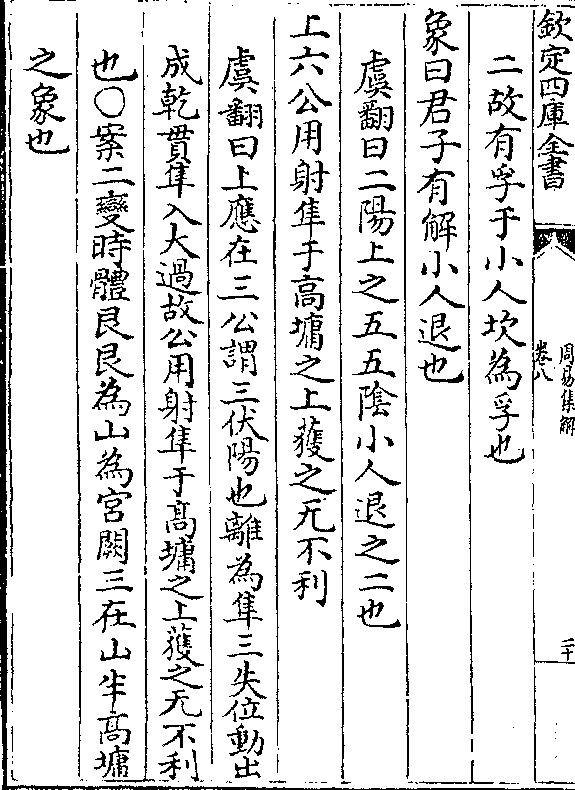 欽定四庫全書
周易集解
卷八
二十
二故有孚于小人坎為孚也
象曰君子有解小人退也
虞翻曰二陽上之五五陰小人退之二也
上六公用射隼于高墉之上獲之无不利
虞翻曰上應在三公謂三伏陽也離為隼三失位動出
成乾貫隼入大過故公用射隼于高墉之上獲之无不利
也○案二變時體艮艮為山為宮闕三在山半高墉
之象也